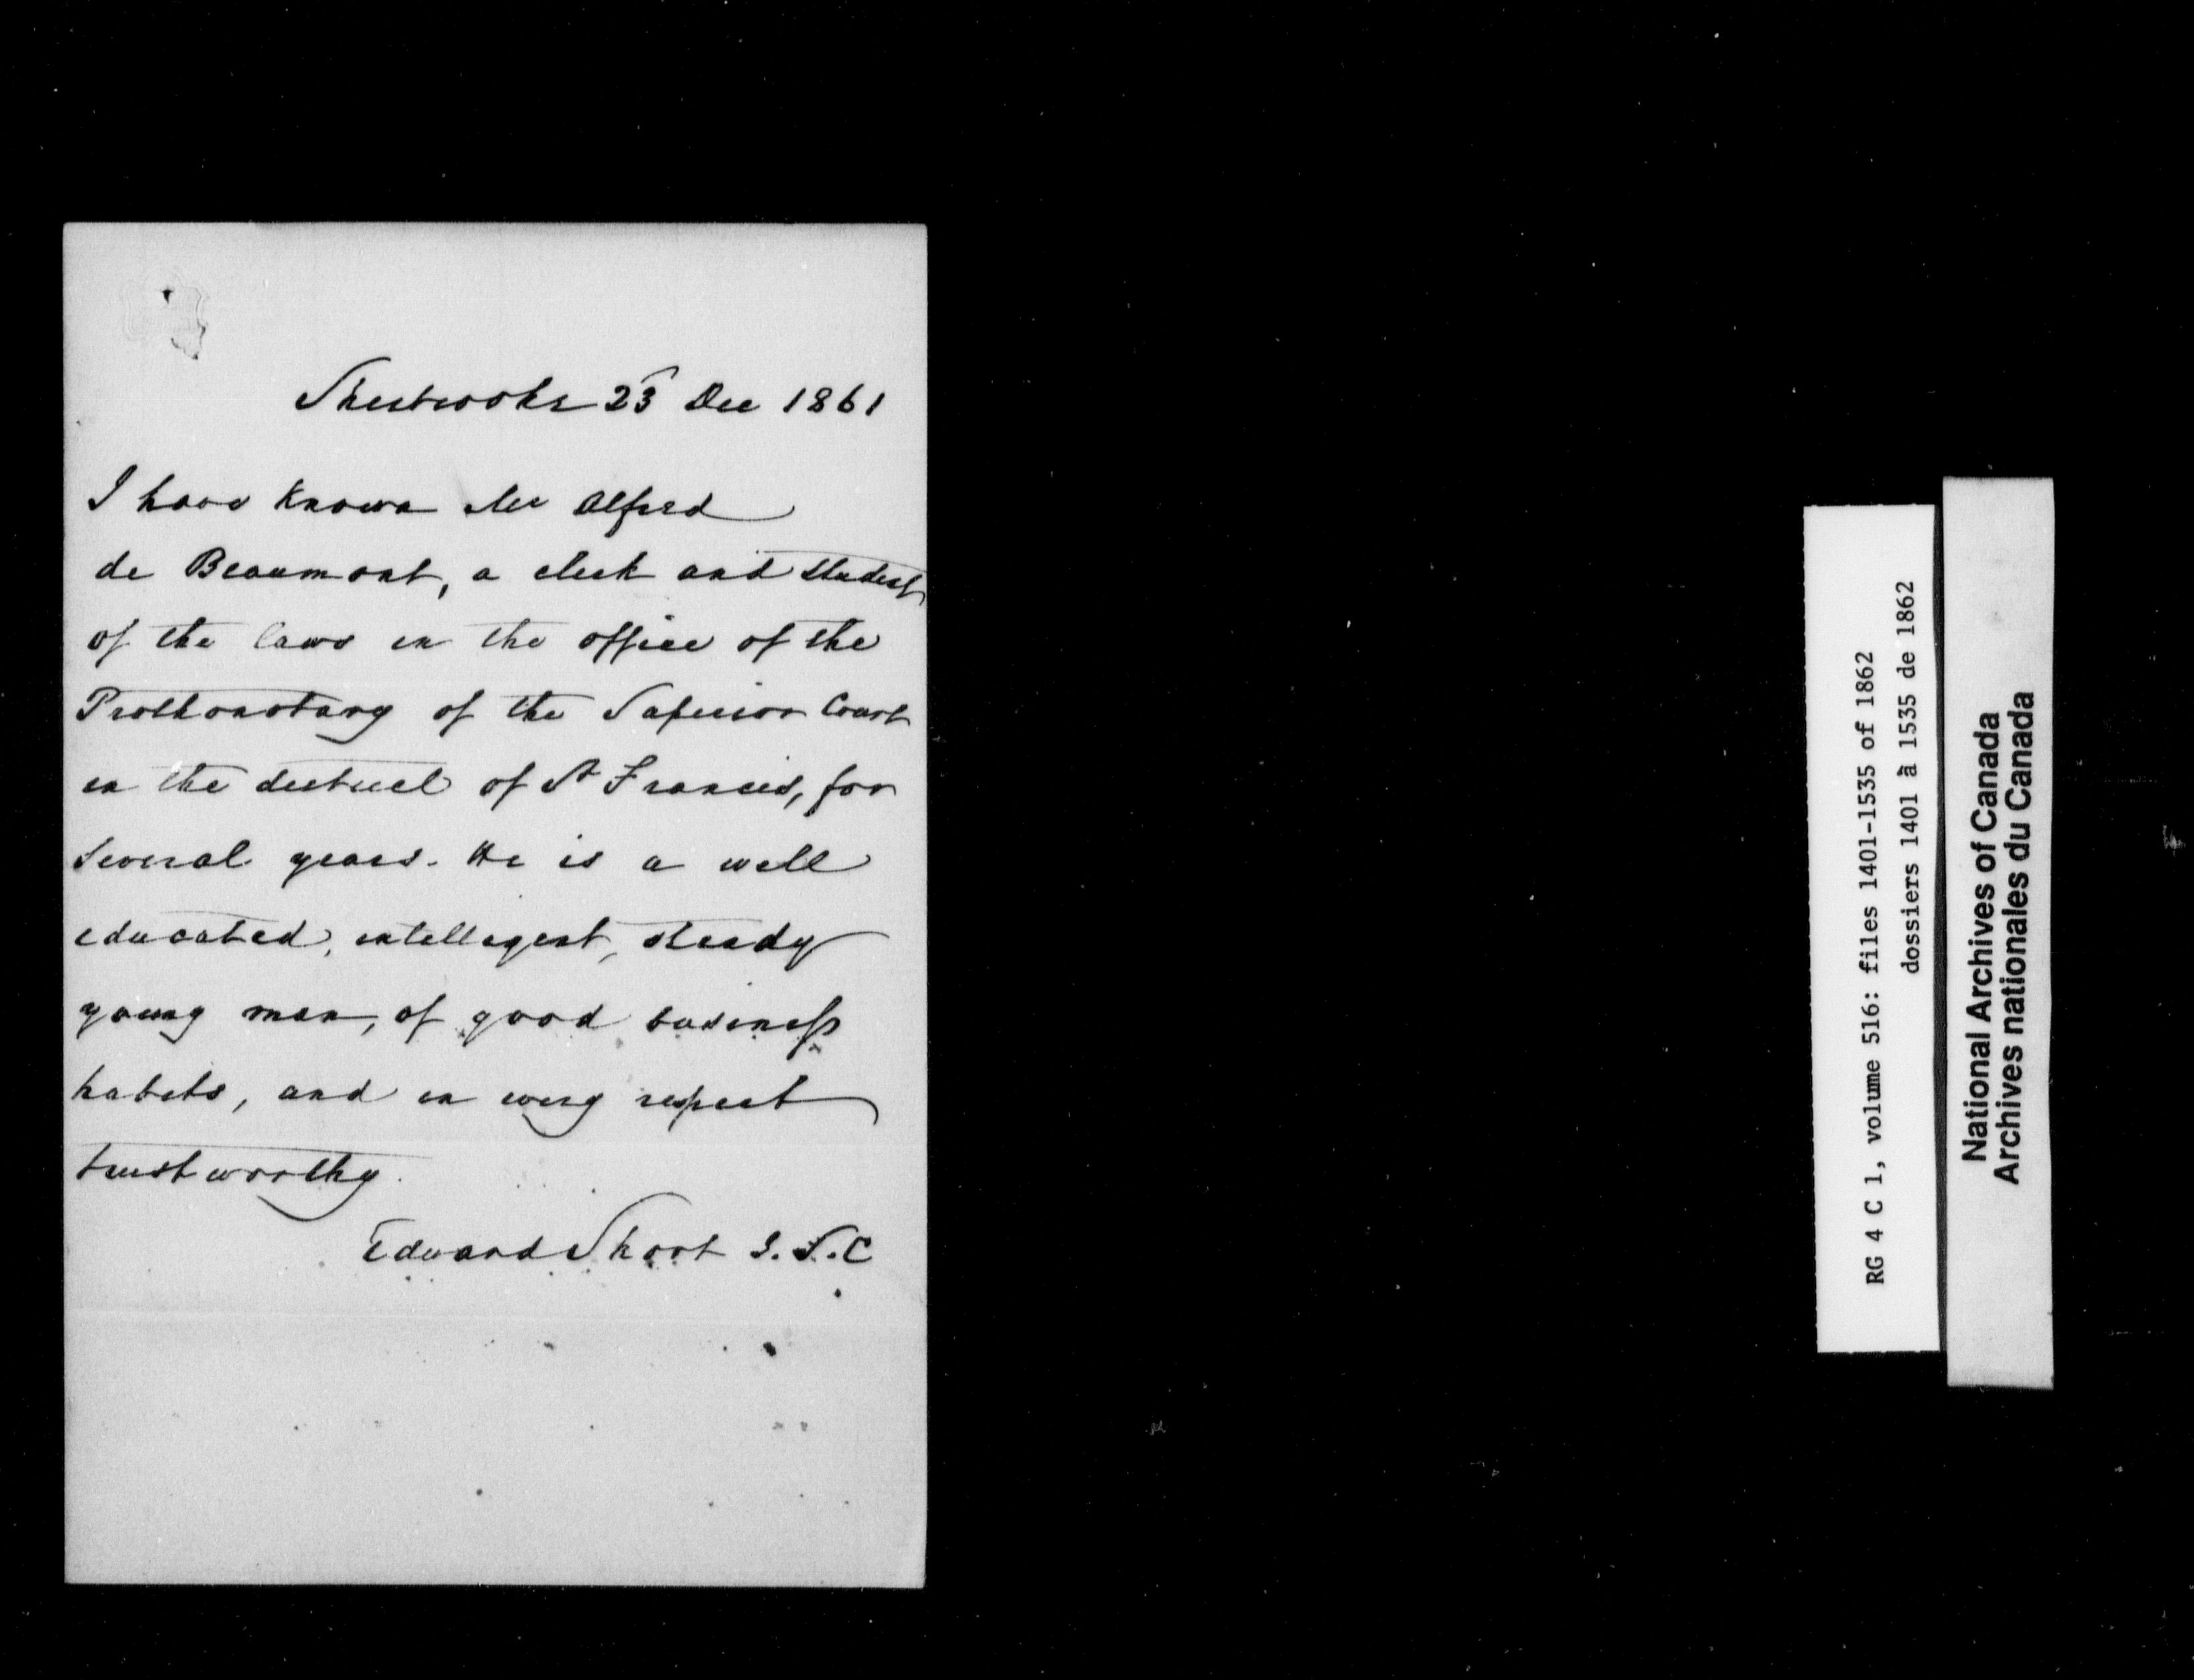 Sherbrooke 23 Dec 1861
I have known Mr Alfred
de Beaumont, a clerk and student
of the laws in the office of the
Prothonotary of the Superior Court
in the district of St Francis, for
several years. He is a well
educated, intelligent, steady
young man, of good business
habits, and in every respect
trustworthy.
Edward Short J.S.C
RG 4 C 1, volume 516: files 1401-1535 of 1862
dossiers 1401 à 1535 de 1862
National Archives of Canada
Archives nationales du Canada